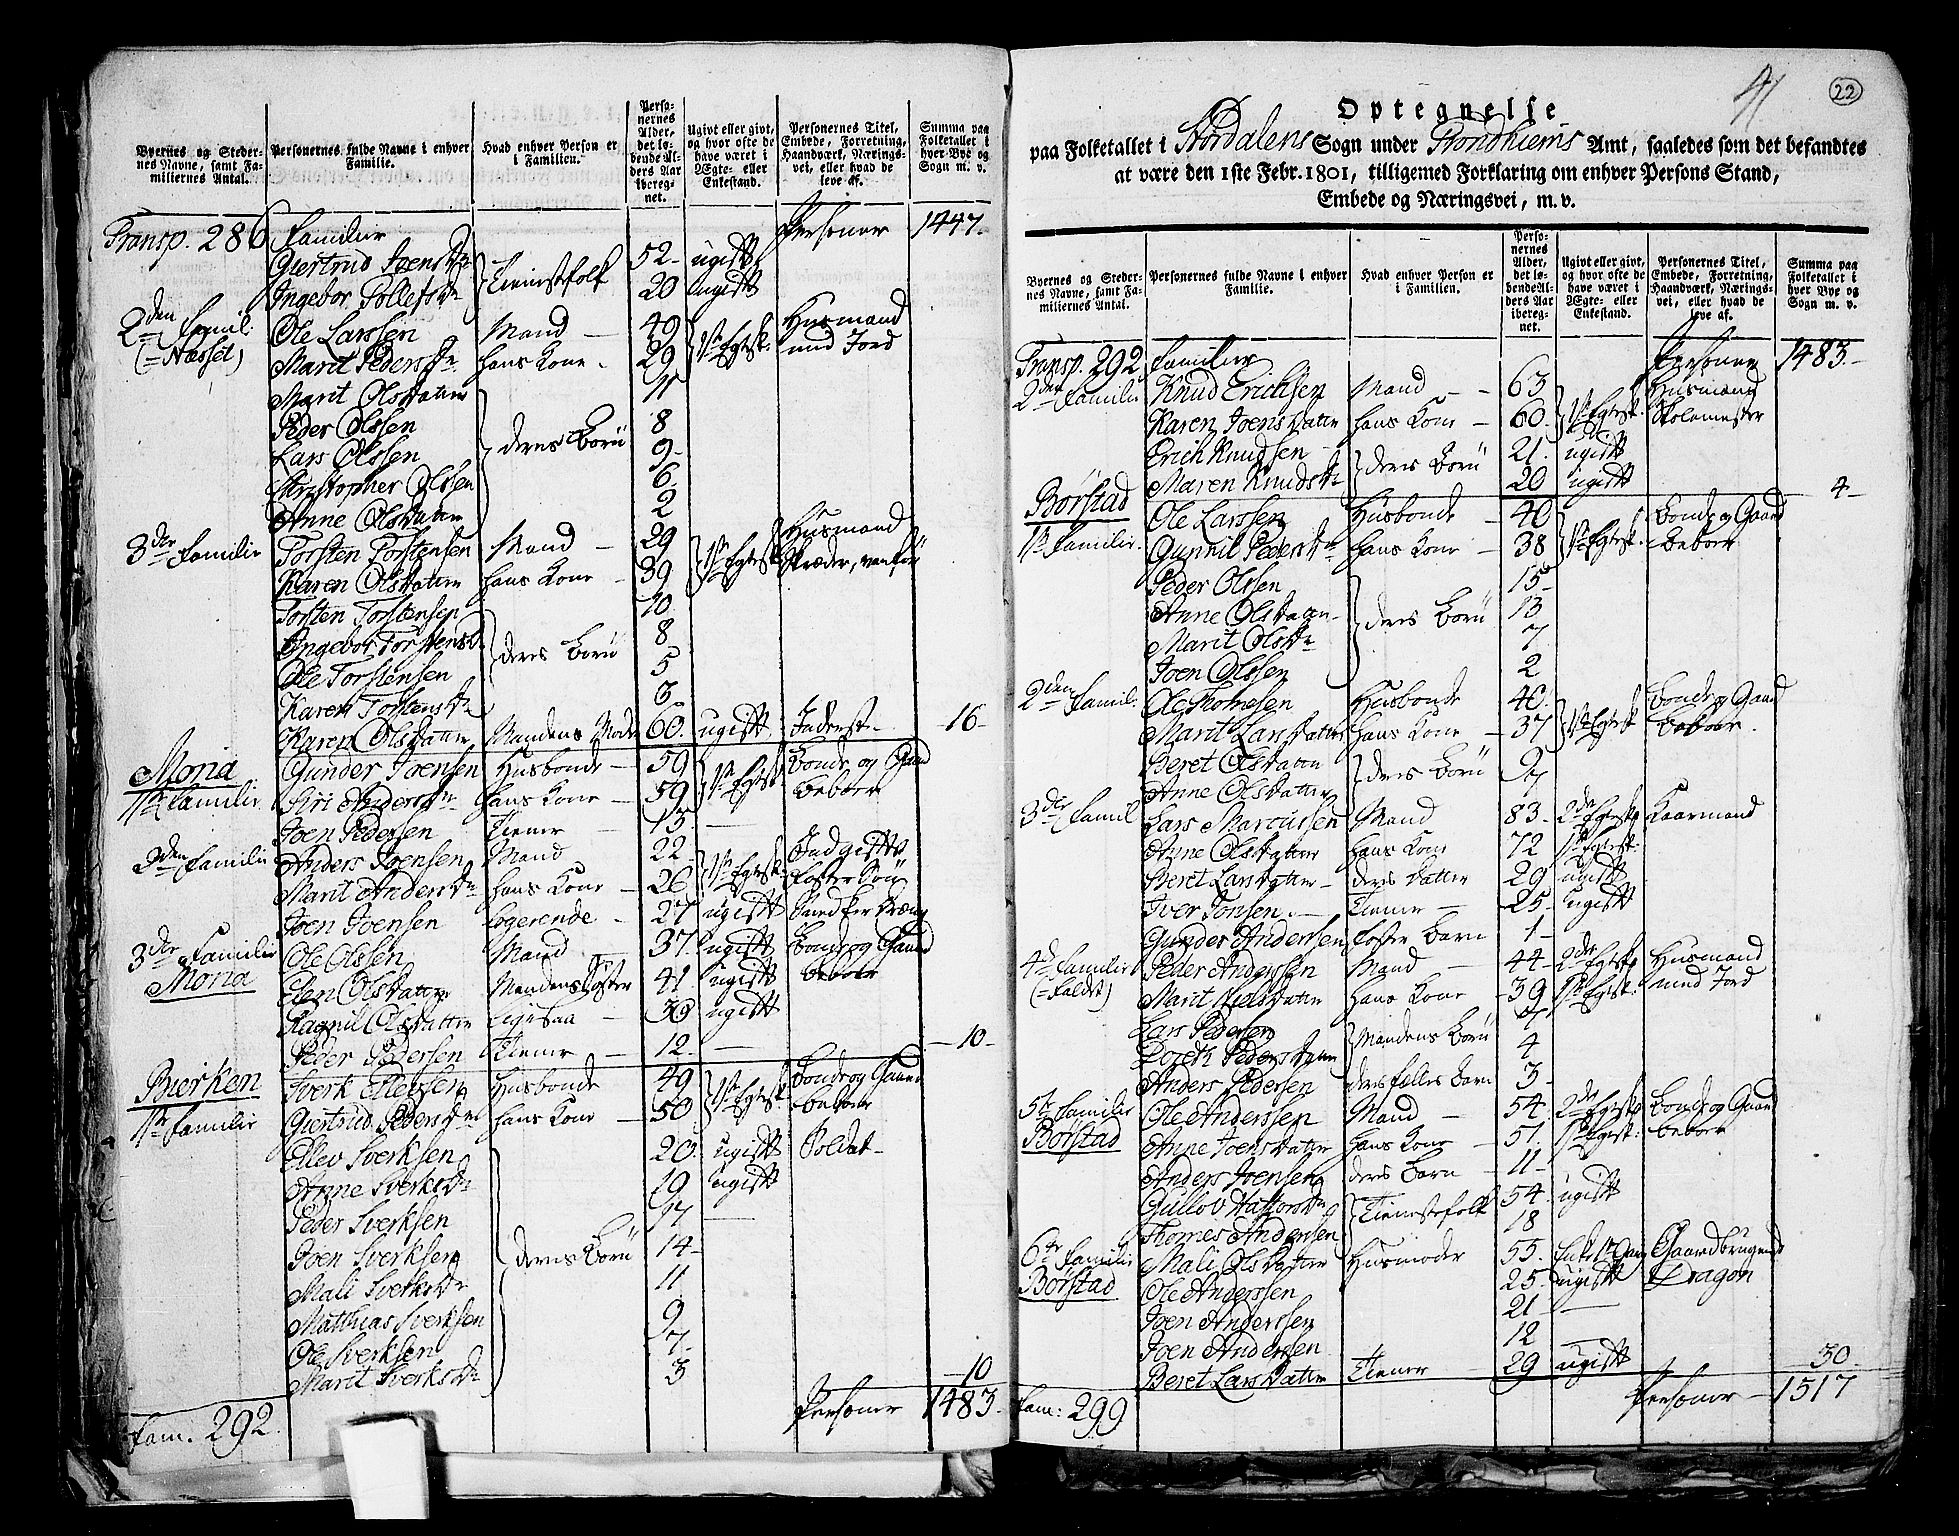 Byernes og Steder-
nes Navne, samt Fa-
miliernes Antal.
Personernes fulde Navne i enhver
Familie.
Hvad enhver Person er
i Familien.
Perso-
nernes
Alder,
det lø-
bende Al-
ders Aar
ibereg-
net.
Ugivt eller givt,
og hvor ofte de
have været i
Ægte- eller
Enkestand.
Personernes Titel,
Embede, Forretning,
Haandværk, Nærings-
vei, eller hvad de
leve af.
Summa paa
Folketallet i
hver Bye og
Sogn m. v.
Transp. 286 Familier Personer 1447.
Giertrud Joensdr Tienestefolk 52 ugift
Ingebor Tollefsdr 20 ugift
2den Famil: Ole Larssen Mand 49 1ste Egtesk. Husmand
(=Næsset) Marit Pedersdr hans Kone 29 med Jord
Marit Olsdatter 11
Peder Olssen deres Børn 8
Lars Olssen 9
Christopher Olssen 6
Anne Olsdatter 2
3die Familie Torsten Torstensen Mand 29 1ste Egtesk Husmand
Karen Olsdatter hans Kone 39 Skræder, vanfør
Torsten Torstensen 10
Ingebor Torstensd. deres Børn 8
Ole Torstensen 5
Karen Torstensdr 3
Karen Olsdatter Mandens Moder 60 ugift Inderst 16
Moria Gunder Joensen Husbonde 59 1ste Egtesk Bonde og Gaard
1ste Familie Siri Andersdr hans Kone 59 beboer
Joen Pedersen Tiener 15
2den Familie Anders Joensen Mand 22 1ste Egtesk. Indgiftet
Marit Andersdr hans Kone 26 foster Søn
Joen Joensen Logerende 27 ugift
3die Familie Ole Olssen Mand 37 ugift Bonde og Gaard
Moria Elen Olsdatter Mandens Søster 41 ugift beboer
Ragnil Olsdatter Ligesaa 30 ugift
Peder Pedersen Tiener 12 10
Bierken Sverk Ellevsen Husbonde 49 1ste Egtesk. Bonde og Gaard
1ste Familie Giertrud Pedersdr hans Kone 50 beboer
Ellev Sverksen 20 ugift Soldat
Anne Sverksdr 19 ugift
Peder Sverksen 17
Joen Sverksen deres Børn 14
Mali Sverksdr 11
Matthias Sverksen 9
Ole Sverksen 7
Marit Sverksdr 3 10
Fam. 292. Personer 1483.
41
22
Optegnelse
paa Folketallet i Størdalens Sogn under Trondhiems Amt, saaledes som det befandtes
at være den 1ste Febr. 1801, tilligemed Forklaring om enhver Persons Stand,
Embede og Næringsvei, m. v.
Byernes og Steder-
nes Navne, samt Fa-
miliernes Antal.
Personernes fulde Navne i enhver
Familie.
Hvad enhver Person er
i Familien.
Perso-
nernes
Alder,
det lø-
bende Al-
ders Aar
ibereg-
net.
Ugivt eller givt,
og hvor ofte de
have været i
Ægte- eller
Enkestand.
Personernes Titel,
Embede, Forretning,
Haandværk, Nærings-
vei, eller hvad de
leve af.
Summa paa
Folketallet i
hver Bye og
Sogn m. v.
Transp. 292 Familier Personer 1483.
2den Familie Knud Erichsen Mand 63 1ste Egtesk. Husmand
Karen Joensdatter hans Kone 60 Skolemester
Erich Knudsen deres Børn 21 ugift
Maren Knudsdr 20 ugift 4
Børstad Ole Larssen Husbonde 40 1ste Egtesk. Bonde og Gaard
1ste Familie. Gunnil Pedersdr hans Kone 38 beboer
Peder Olssen 15
Anne Olsdatter deres Børn 13
Marit Olsdr 7
Joen Olssen 2
2den Famil: Ole Thomesen Husbonde 40 1ste Egtesk Bonde og Gaard
Marit Larsdatter hans Kone 37 beboer.
Beret Olsdatter deres Børn 9
Anne Olsdatter 7
3die Famil Lars Marcussen Mand 83 2det Egtesk Kaarmand
Anne Olsdatter hans Kone 72 1ste Egtesk:
Beret Larsdatter deres Datter 29 ugift
Iver Tonsen Tiener 25 ugift
Gunder Anderssen foster Barn 1
4de Familie Peder Anderssen Mand 44 2det Egtesk Husmand
(=Faldet) Marit Nielsdatter hans Kone 39 1ste Egtesk: med Jord
Lars Pedersen Mandens Børn 7
Doreth Pedersdatter 4
Anders Pedersen deres fælles Barn 3
5te Familie Ole Anderssen Mand 54 2det Egtesk Bonde og Gaard
Børstad Anne Joensdatter hans Kone 51 1ste Egtesk: beboer
Anders Joensen deres Barn 11
Gullov Hafporsdr Tienestefolk 54 ugift
Thomes Andersen 18
6te Familie Mali Olsdatter Husmoder 55 Enke 1ste Gang Gaardbrugende
Børstad Ole Anderssen 25 ugift Dragon
Joen Anderssen 21
Joen Anderssen 12
Beret Larsdatter Tiener 29 ugift 30
Fam: 299 Personer 1517